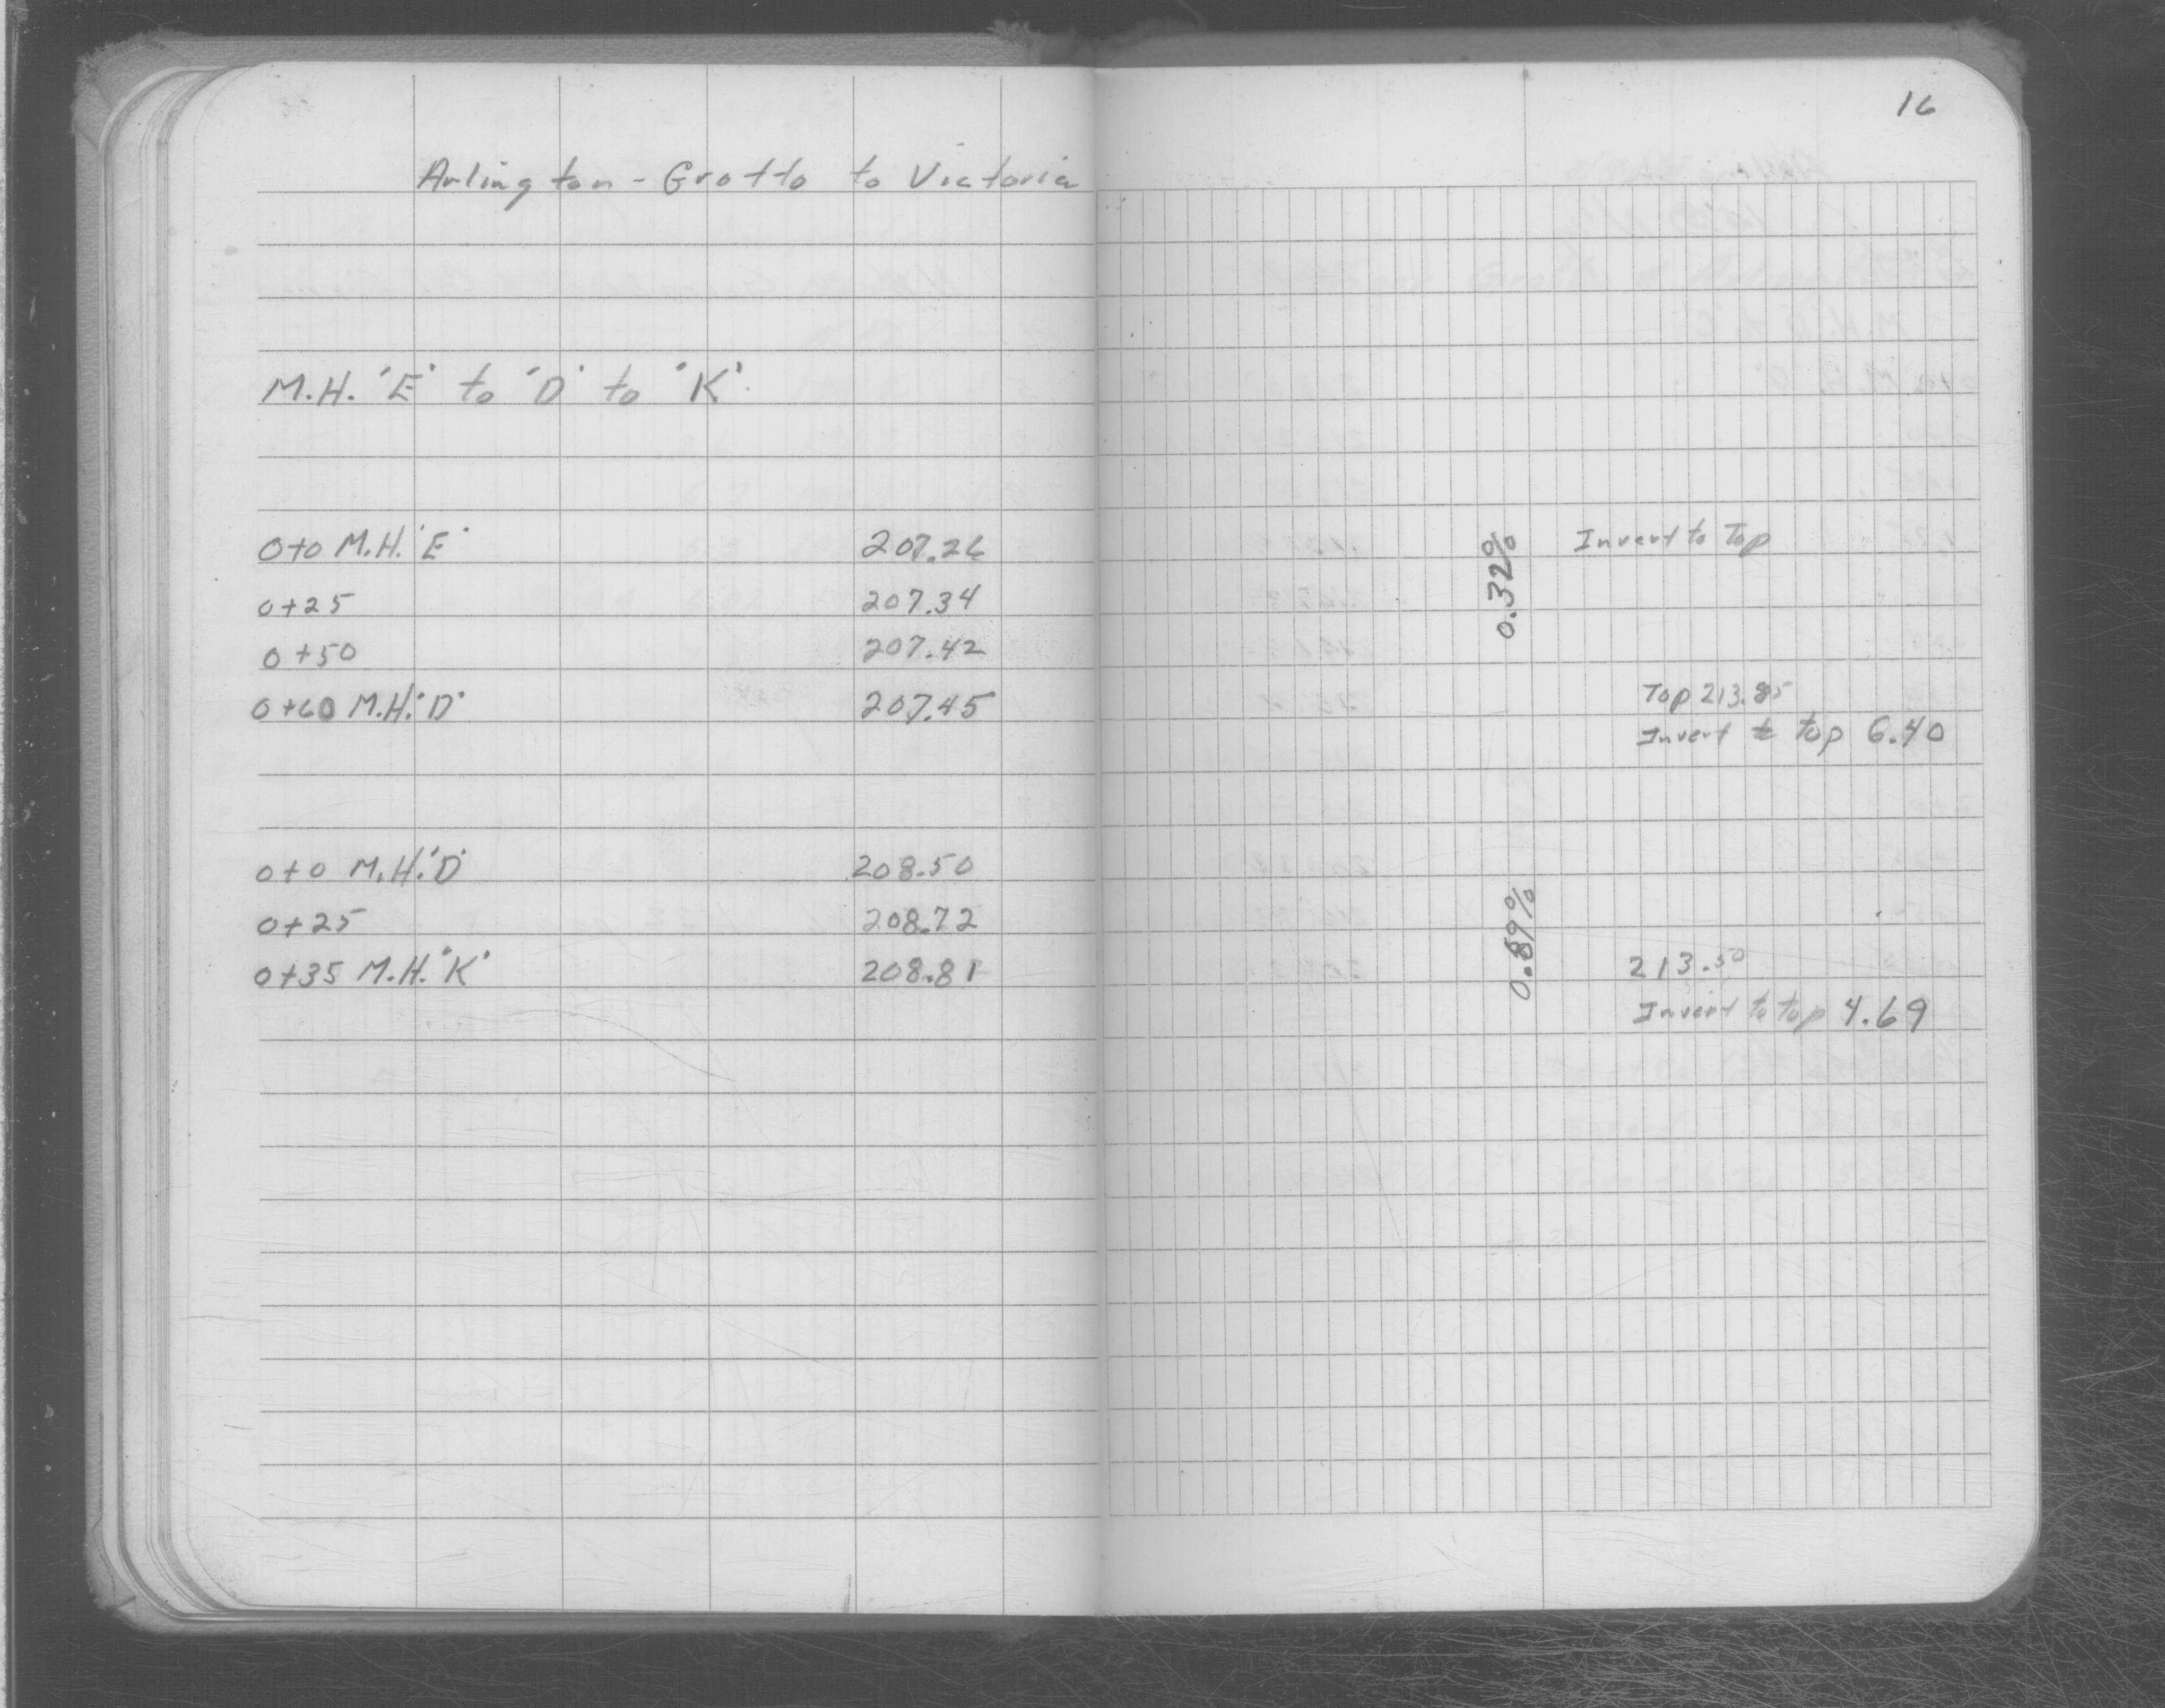 16
Arlington - Grotto to Victoria
M.H. "E" to "D" to "K"
0+0 M.H. "E" 207.26 0.32% Invert to Top
0+25 207.34
0+50 207.42
0+60 M.H. "D" 207.45 Top 213.85
Invert to top 6.40
0+0 M.H. "D" 208.50
0+25 208.72 0.89%
0+35 M.H. "K" 208.81 213.50
Invert to top 4.69